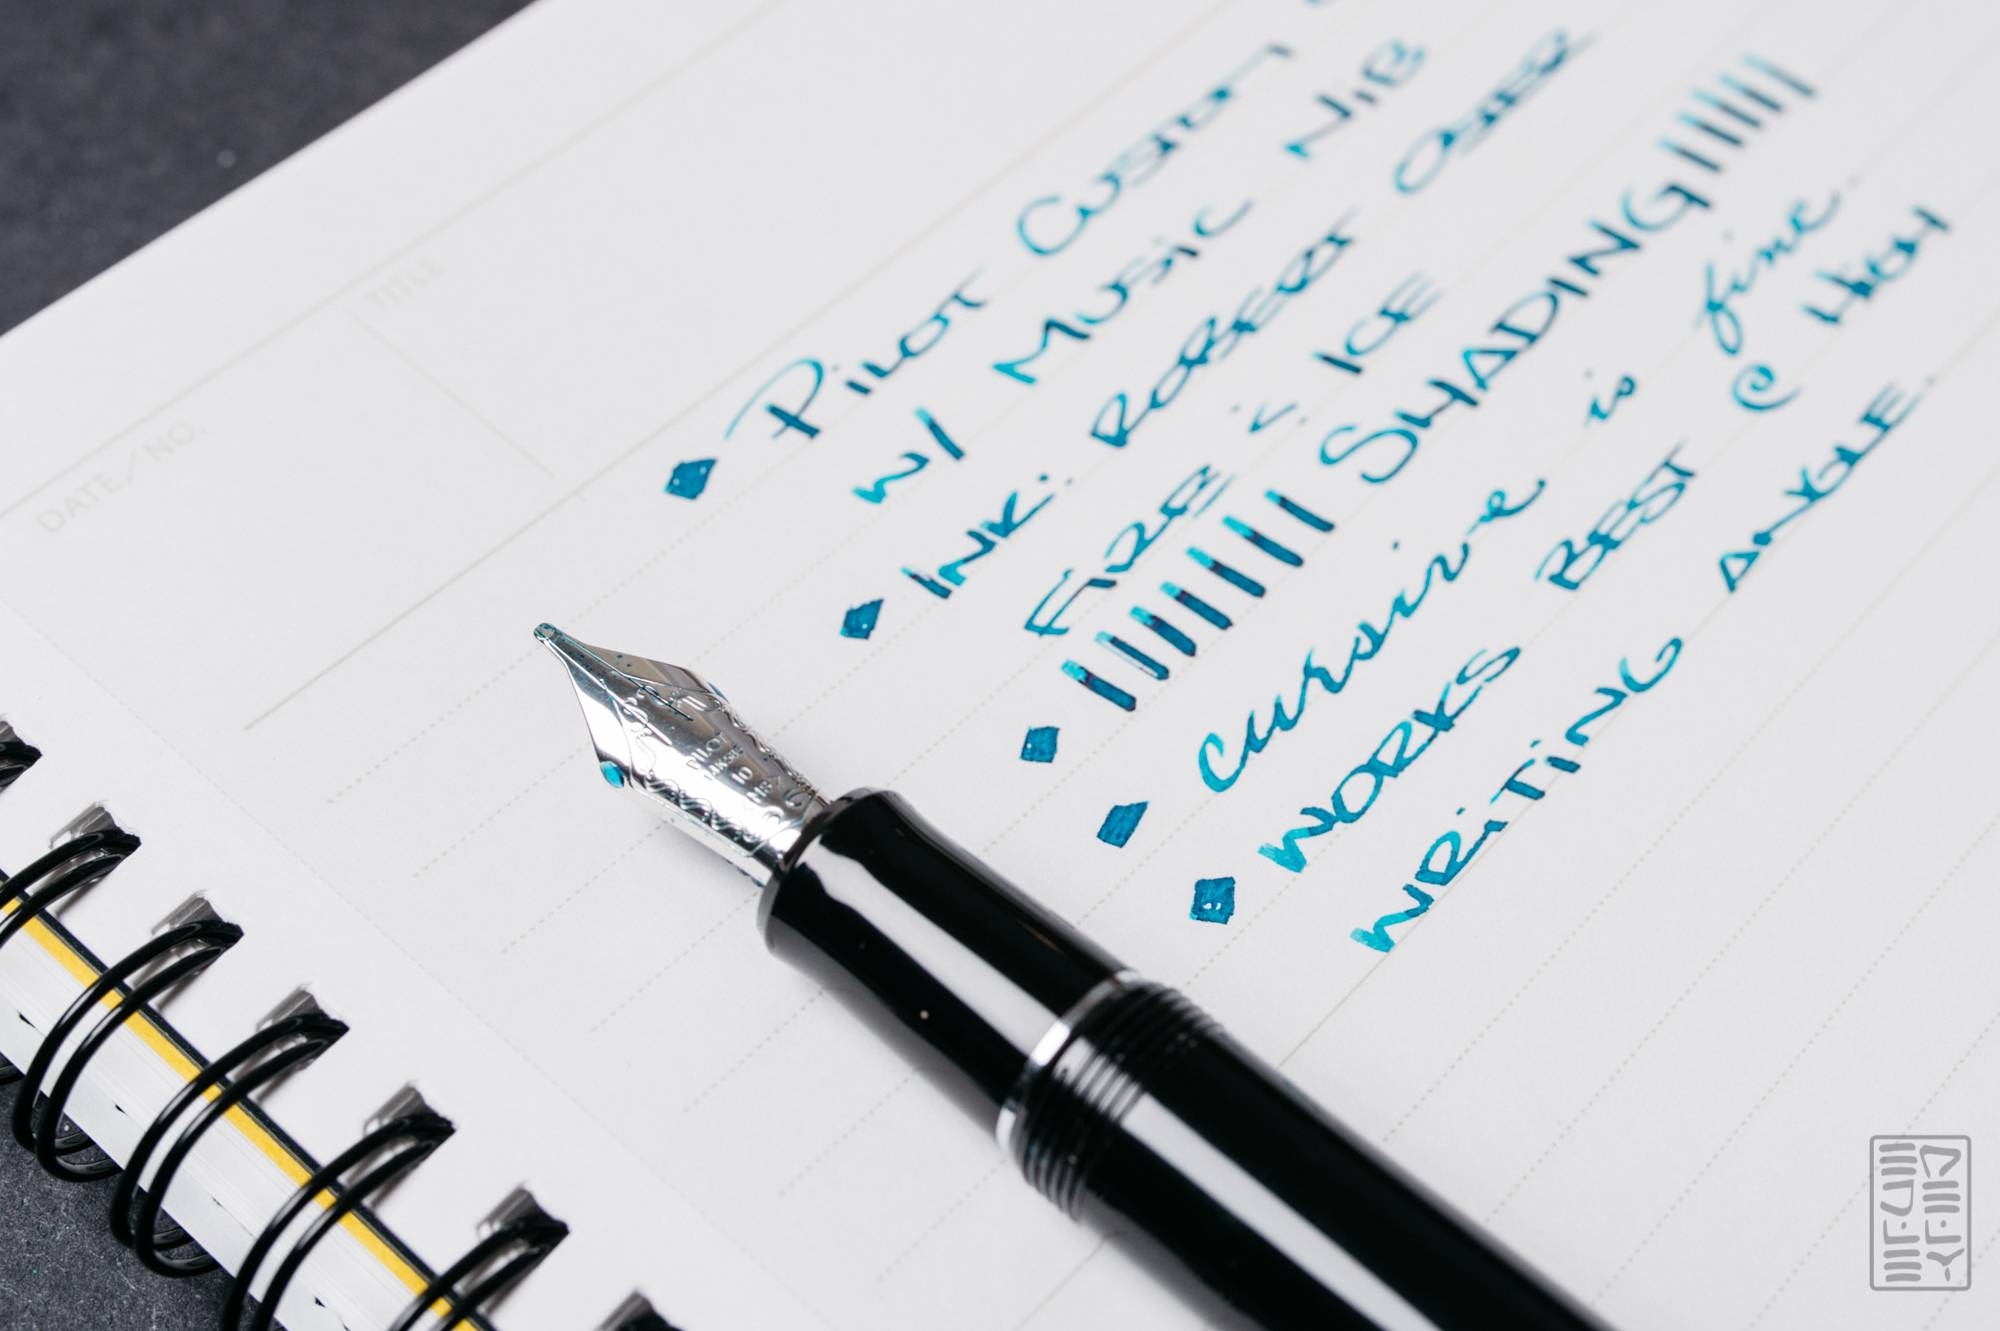 TITLE
DATE/NO.
Pilot Custom
w/ Music Nib
INK: ROBERT OSTER
FIRE & ICE
SHADING
cursive is fine.
WORKS BEST @ HIGH
WRITING ANGLE.
PILOT
14K585
10